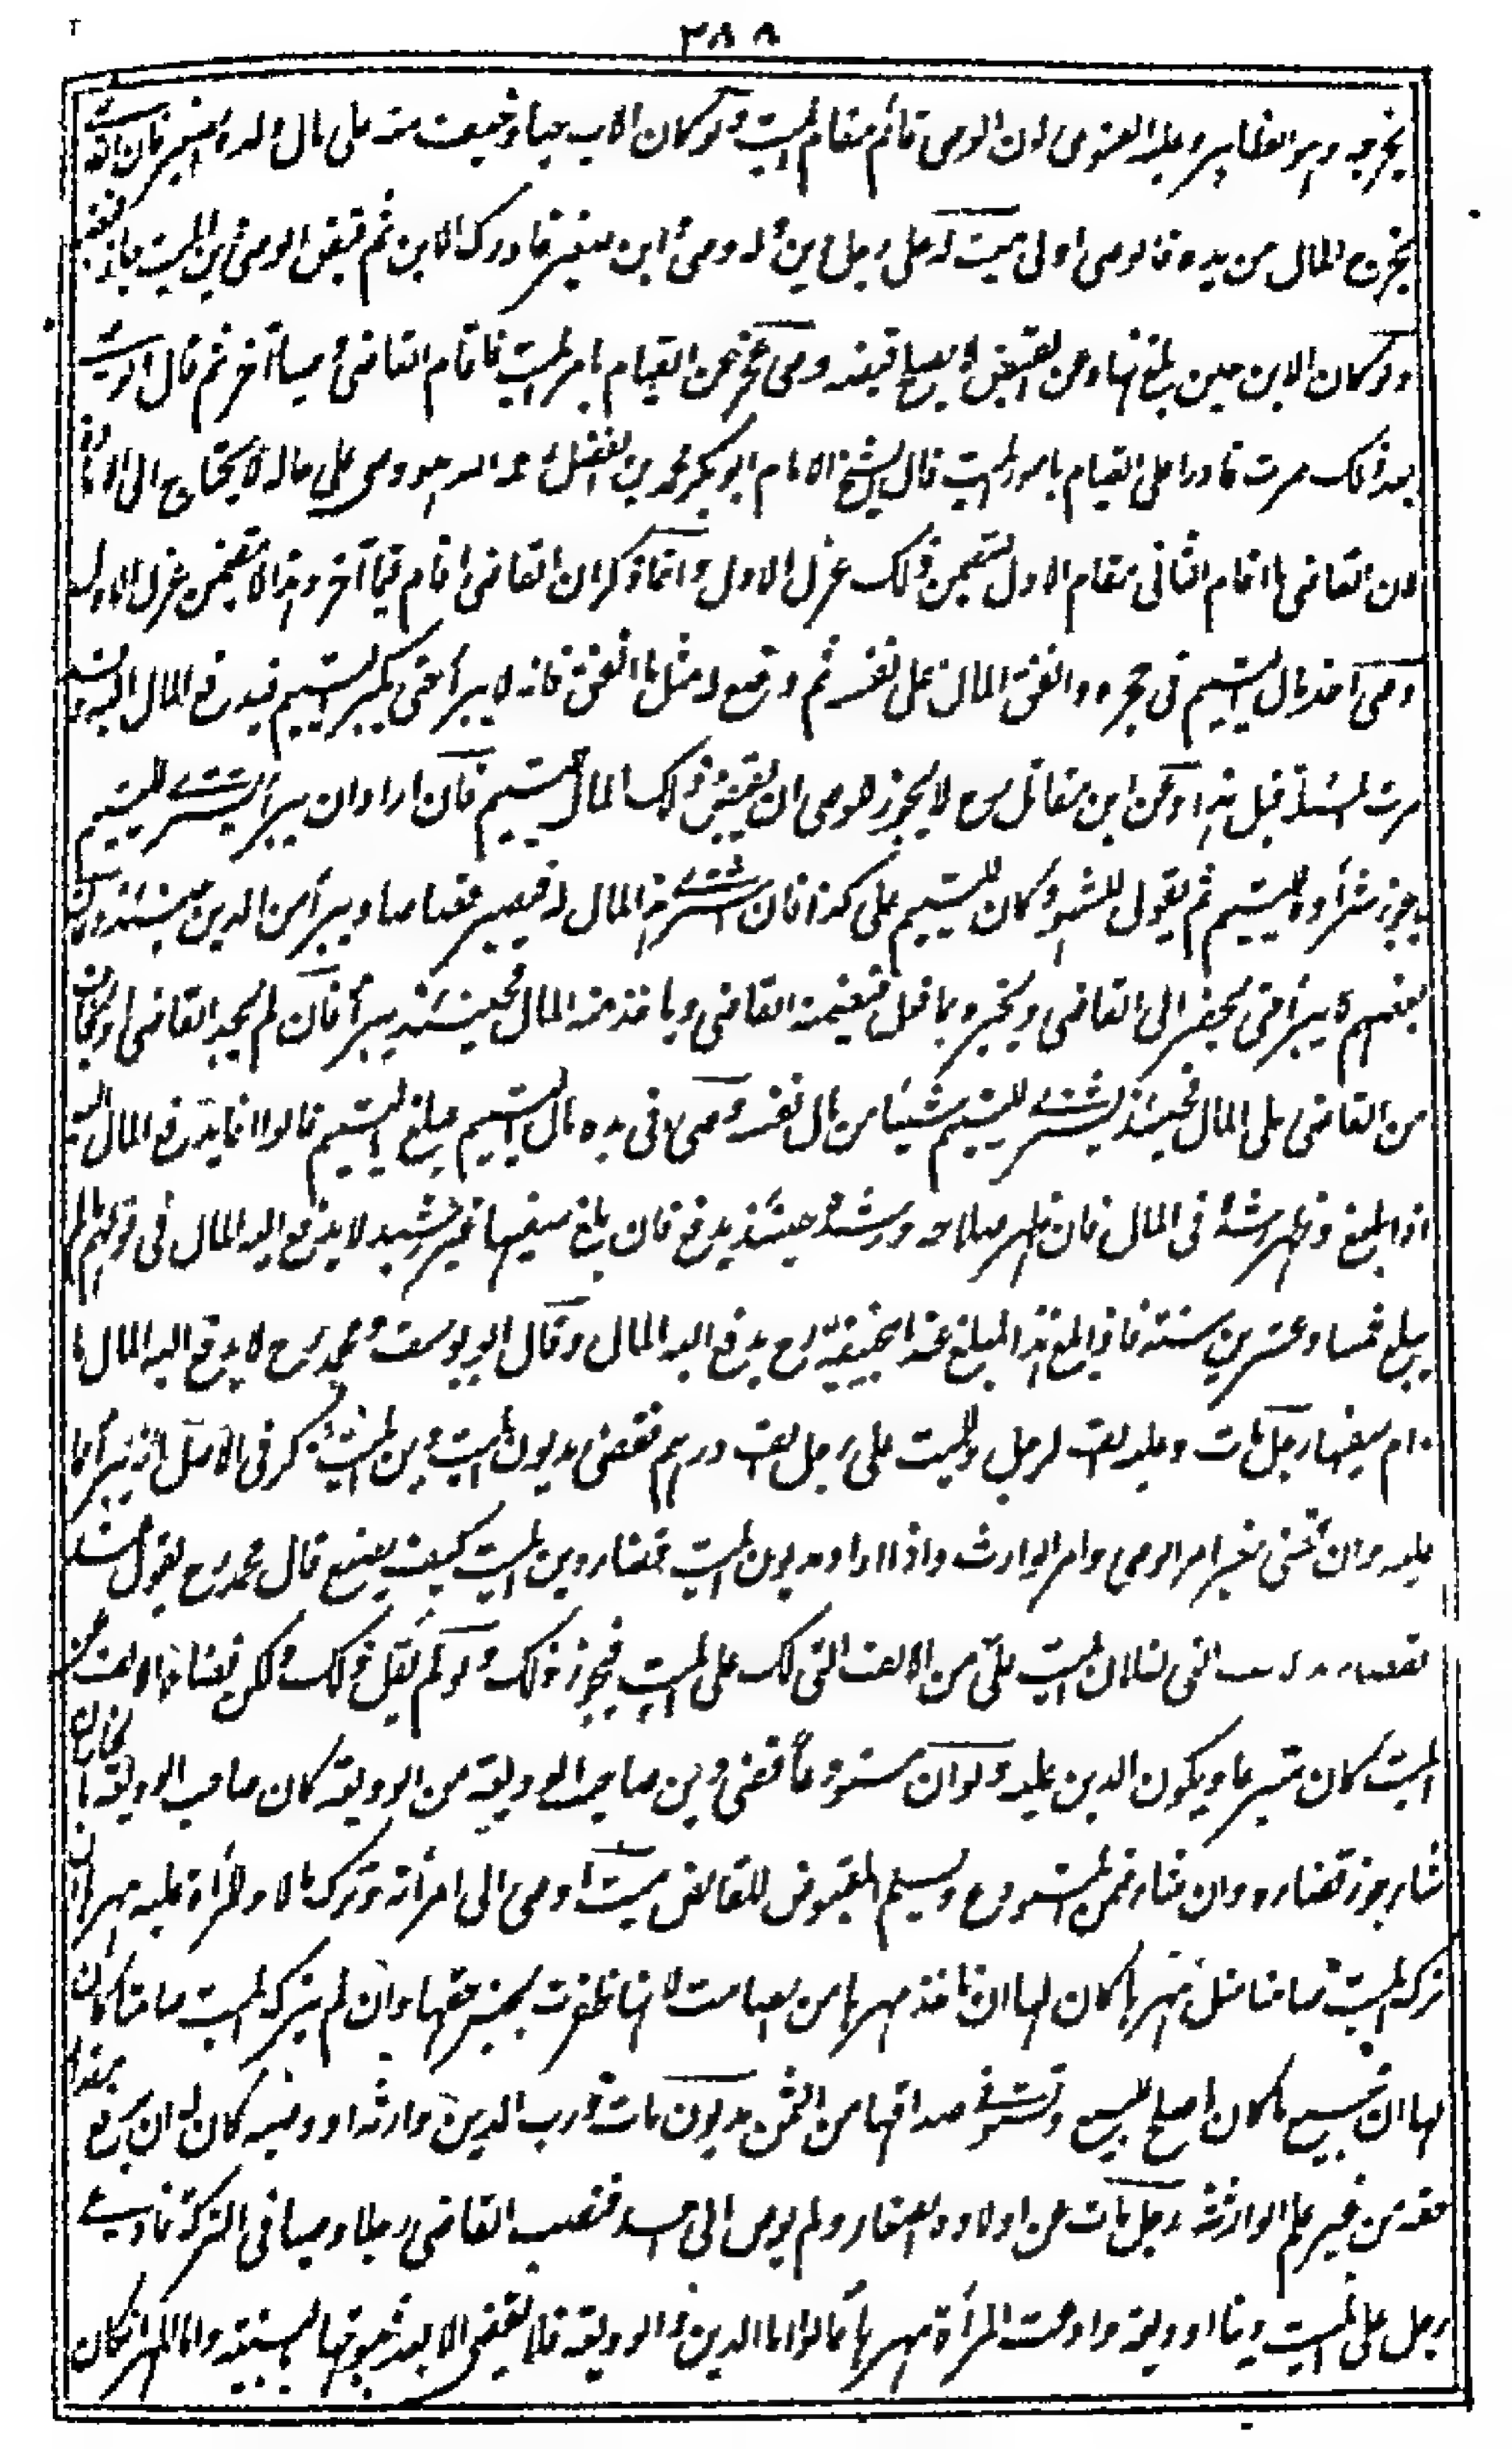 ٣٨٨
يخرجه وهو الظاهر وعليه الفتوى لان الوصي قائم مقام الميت ولو كان الاب حيا وخيف منه على مال ولده الصغير فان القاضي
يخرج المال من يده فالوصي اولى ميت له على رجل دين وله وصي وابن صغير فادرك الابن ثم قبض الوصي دين الميت جاز قبضه
ولو كان الابن حين بلغ نهاه عن القبض لا يصح قبضه وصي عجز عن القيام بامر الميت فاقام القاضي وصيا آخر ثم قال الوصي
بعد ذلك صرت قادرا على القيام بامور الميت قال الشيخ الامام ابو بكر محمد بن الفضل رحمه الله هو وصي على حاله لا يحتاج الى الاعادة
لان القاضي ما اقام الثاني مقام الاول ليتضمن ذلك عزل الاول وانما ذكر ان القاضي اقام قيما آخر وهذا لا يتضمن عزل الاول
وصي اخذ مال اليتيم في حجره وانفق المال على نفسه ثم وضع له مثل ما انفق فانه لا يبرأ حتى يكبر اليتيم فيدفع المال اليه وقد
مرت المسئلة قبل هذا وعن ابن مقاتل رح لا يجوز للوصي ان يقضي ذلك المال لليتيم فان اراد ان يبرأ يشتري لليتيم
ما يجوز شراؤه لليتيم ثم يقول للشهود كان لليتيم علي كذا فان اشتري هذا المال له فيصير قصاصا ويبرأ من الدين حينئذ وقال
بعضهم لا يبرأ حتى يحضر الى القاضي ويخبره بما فعل فيضمنه القاضي ويأخذ منه المال فحينئذ يبرأ فان لم يجد القاضي او يخاف
من القاضي على المال فحينئذ يشتري لليتيم شيئا من مال نفسه وصي في يده مال اليتيم فبلغ اليتيم قالوا انما يدفع المال اليه
اذا بلغ وظهر رشده في المال فان ظهر صلاحه ورشده حينئذ يدفع فان بلغ سفيها غير رشيد لا يدفع اليه المال في قولهم ما لم
يبلغ خمسا وعشرين سنة فاذا بلغ هذا المبلغ عند ابي حنيفة رح يدفع اليه المال وقال ابو يوسف ومحمد رح لا يدفع اليه المال ما
دام سفيها رجل مات وعليه الف لرجل وللميت على رجل الف درهم فقضى مديون الميت دين الميت ذكر في الاصل انه يبرأ عما
عليه وان قضى بغير امر الوصي وامر الوارث واذا اراد مديون الميت قضاء دين الميت كيف يصنع قال محمد رح يقول عند
القضاء هذه الالف التي لفلان الميت علي من الالف التي لك على الميت فيجوز ذلك ولو لم يقل ذلك ولكن قضاه الالف عن
الميت كان متبرعا ويكون الدين عليه ولو ان مستودعا قضى دين صاحب الوديعة من الوديعة كان صاحب الوديعة بالخيار ان
شاء جوز قضاءه وان شاء ضمن المستودع ويسلم المقبوض للقابض ميت اوصى الى امرأته وترك مالا وللمرأة عليه مهر ان
ترك الميت صامتا مثل مهرها كان لها ان تأخذ مهرها من الصامت لانها ظفرت بجنس حقها وان لم يترك الميت صامتا كان
لها ان تبيع ما كان اصلح للبيع وتستوفي صداقها من الثمن مديون مات ورب الدين وارثه او وصيه كان له ان يرفع مقدار
حقه من غير علم الوارثة رجل مات عن اولاد وعقار ولم يوص الى احد فنصب القاضي رجلا وصيا في التركة فادعى
رجل على الميت دينا او وديعة وادعت المرأة مهرها قالوا اما الدين والوديعة فلا يقضي الا بعد ثبوتها بالبينة واما المهر ان كان